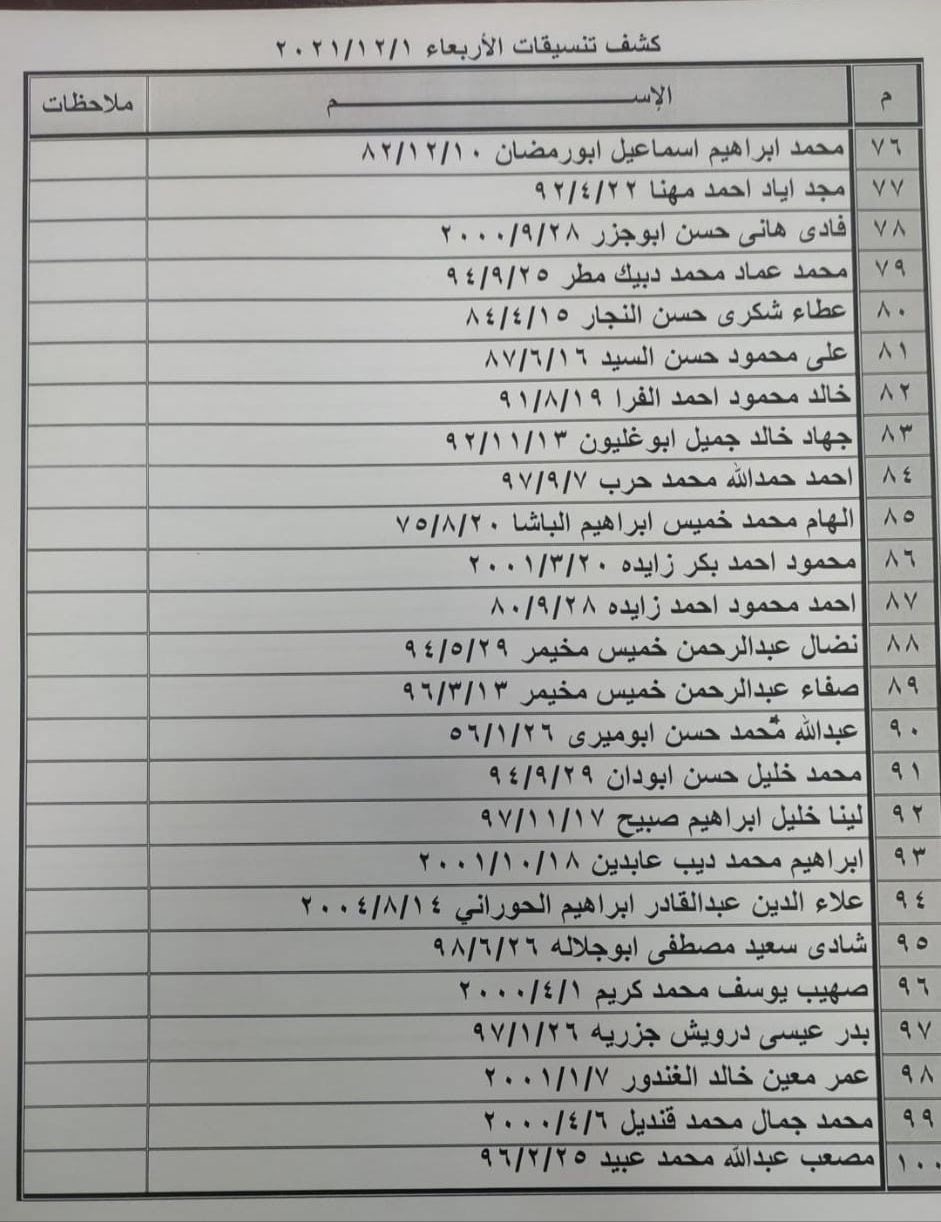 كشف تنسيقات الأربعاء ٢٠٢١/١٢/١
م الإســـــــــم ملاحظات
٧٦ محمد ابراهيم اسماعيل ابورمضان ٨٢/١٢/١٠
٧٧ مجد اياد احمد مهنا ٩٢/٤/٢٢
٧٨ فادى هانى حسن ابوجزر ٢٠٠٠/٩/٢٨
٧٩ محمد عماد محمد دبيك مطر ٩٤/٩/٢٥
٨٠ عطاء شكرى حسن النجار ٨٤/٤/١٥
٨١ على محمود حسن السيد ٨٧/٦/١٦
٨٢ خالد محمود احمد الفرا ٩١/٨/١٩
٨٣ جهاد خالد جميل ابوغليون ٩٢/١١/١٣
٨٤ احمد حمدالله محمد حرب ٩٧/٩/٧
٨٥ الهام محمد خميس ابراهيم الباشا ٧٥/٨/٢٠
٨٦ محمود احمد بكر زايده ٢٠٠١/٣/٢٠
٨٧ احمد محمود احمد زايده ٨٠/٩/٢٨
٨٨ نضال عبدالرحمن خميس مخيمر ٩٤/٥/٢٩
٨٩ صفاء عبدالرحمن خميس مخيمر ٩٦/٣/١٣
٩٠ عبدالله محمد حسن ابوميرى ٥٦/١/٢٦
٩١ محمد خليل حسن ابودان ٩٤/٩/٢٩
٩٢ لينا خليل ابراهيم صبيح ٩٧/١١/١٧
٩٣ ابراهيم محمد ديب عابدين ٢٠٠١/١٠/١٨
٩٤ علاء الدين عبدالقادر ابراهيم الحوراني ٢٠٠٤/٨/١٤
٩٥ شادى سعيد مصطفى ابوجلاله ٩٨/٦/٢٦
٩٦ صهيب يوسف محمد كريم ٢٠٠٠/٤/١
٩٧ بدر عيسى درويش جزريه ٩٧/١/٢٦
٩٨ عمر معين خالد الغندور ٢٠٠١/١/٧
٩٩ محمد جمال محمد قنديل ٢٠٠٠/٤/٦
١٠٠ مصعب عبدالله محمد عبيد ٩٦/٢/٢٥